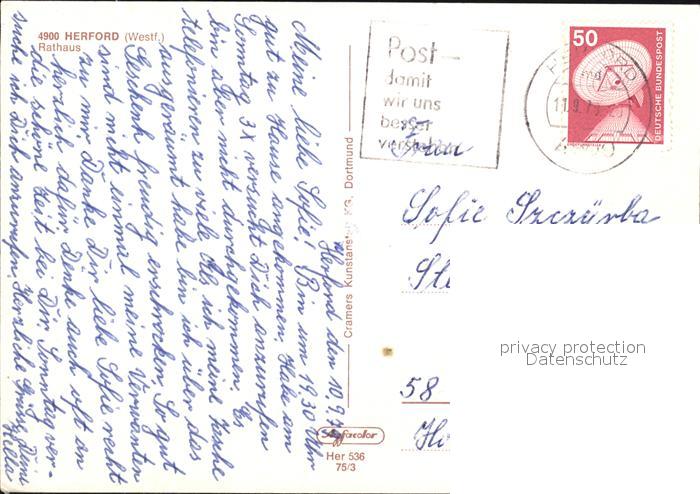 4900 HERFORD (Westf.)
Rathaus
Herford den 10.9.
Meine liebe Sofie! Bin um 19.30 Uhr
gut zu Hause angekommen. Habe am
Sonntag 3X versucht Dich anzurufen
bin aber nicht durchgekommen. Es
telefonieren zu viele. Als ich meine Tasche
ausgeräumt habe bin ich über das
Geschenk freudig erschrocken. So gut
sind nicht einmal meine Verwanten
zu mir. Danke Dir liebe Sofie recht
herzlich dafür. Denke auch oft an
die schöne Zeit bei Dir. Sonntag ver-
suche ich Dich anzurufen. Herzliche Grüße Deine
Hella
Cramers Kunstanstalt KG, Dortmund
Skyfacolor
Her 536
75/3
Post –
damit
wir uns
besser
verstehen
HERFORD
11.9.
50
DEUTSCHE BUNDESPOST
Frau
Sofie Szczürba
58
privacy protection
Datenschutz